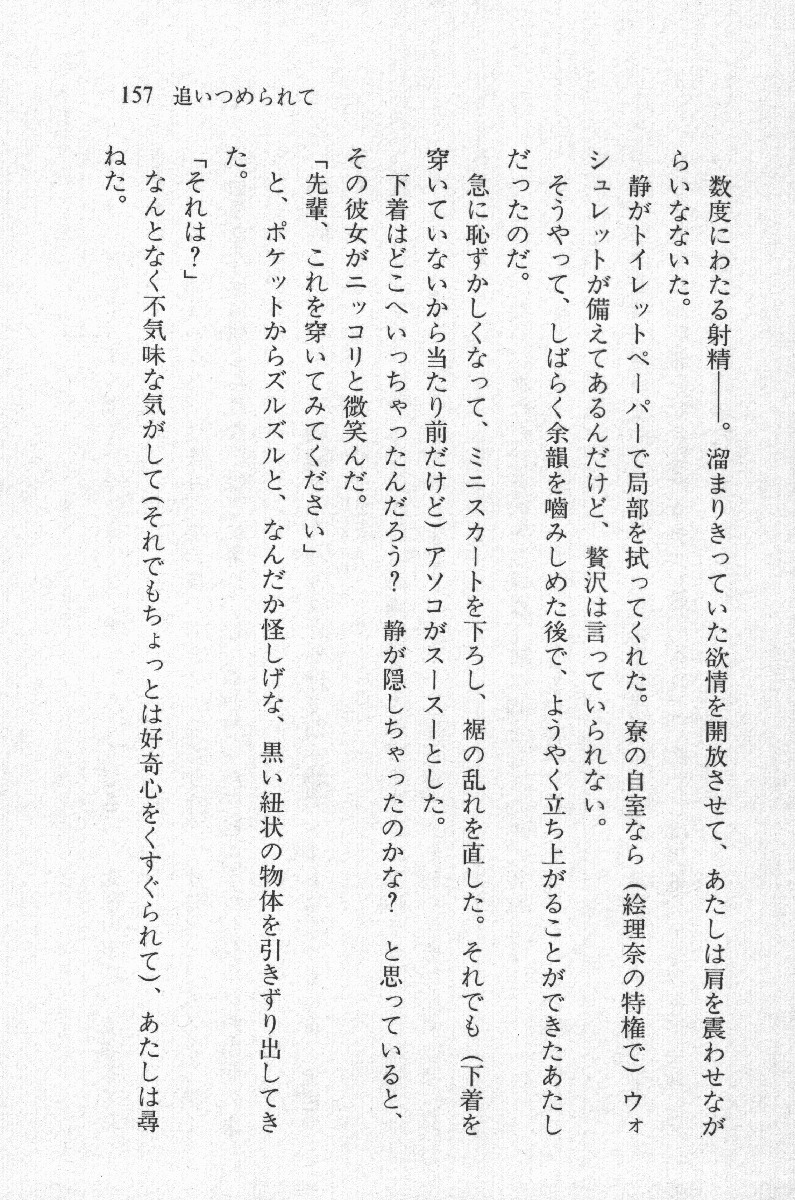 157 追いつめられて
数度にわたる射精――。溜まりきっていた欲情を開放させて、あたしは肩を震わせなが
らいなないた。
静がトイレットペーパーで局部を拭ってくれた。寮の自室なら(絵理奈の特権で)ウォ
シュレットが備えてあるんだけど、贅沢は言っていられない。
そうやって、しばらく余韻を嚙みしめた後で、ようやく立ち上がることができたあたし
だったのだ。
急に恥ずかしくなって、ミニスカートを下ろし、裾の乱れを直した。それでも(下着を
穿いていないから当たり前だけど)アソコがスースーとした。
下着はどこへいっちゃったんだろう? 静が隠しちゃったのかな? と思っていると、
その彼女がニッコリと微笑んだ。
「先輩、これを穿いてみてください」
と、ポケットからズルズルと、なんだか怪しげな、黒い紐状の物体を引きずり出してき
た。
「それは?」
なんとなく不気味な気がして(それでもちょっとは好奇心をくすぐられて)、あたしは尋
ねた。